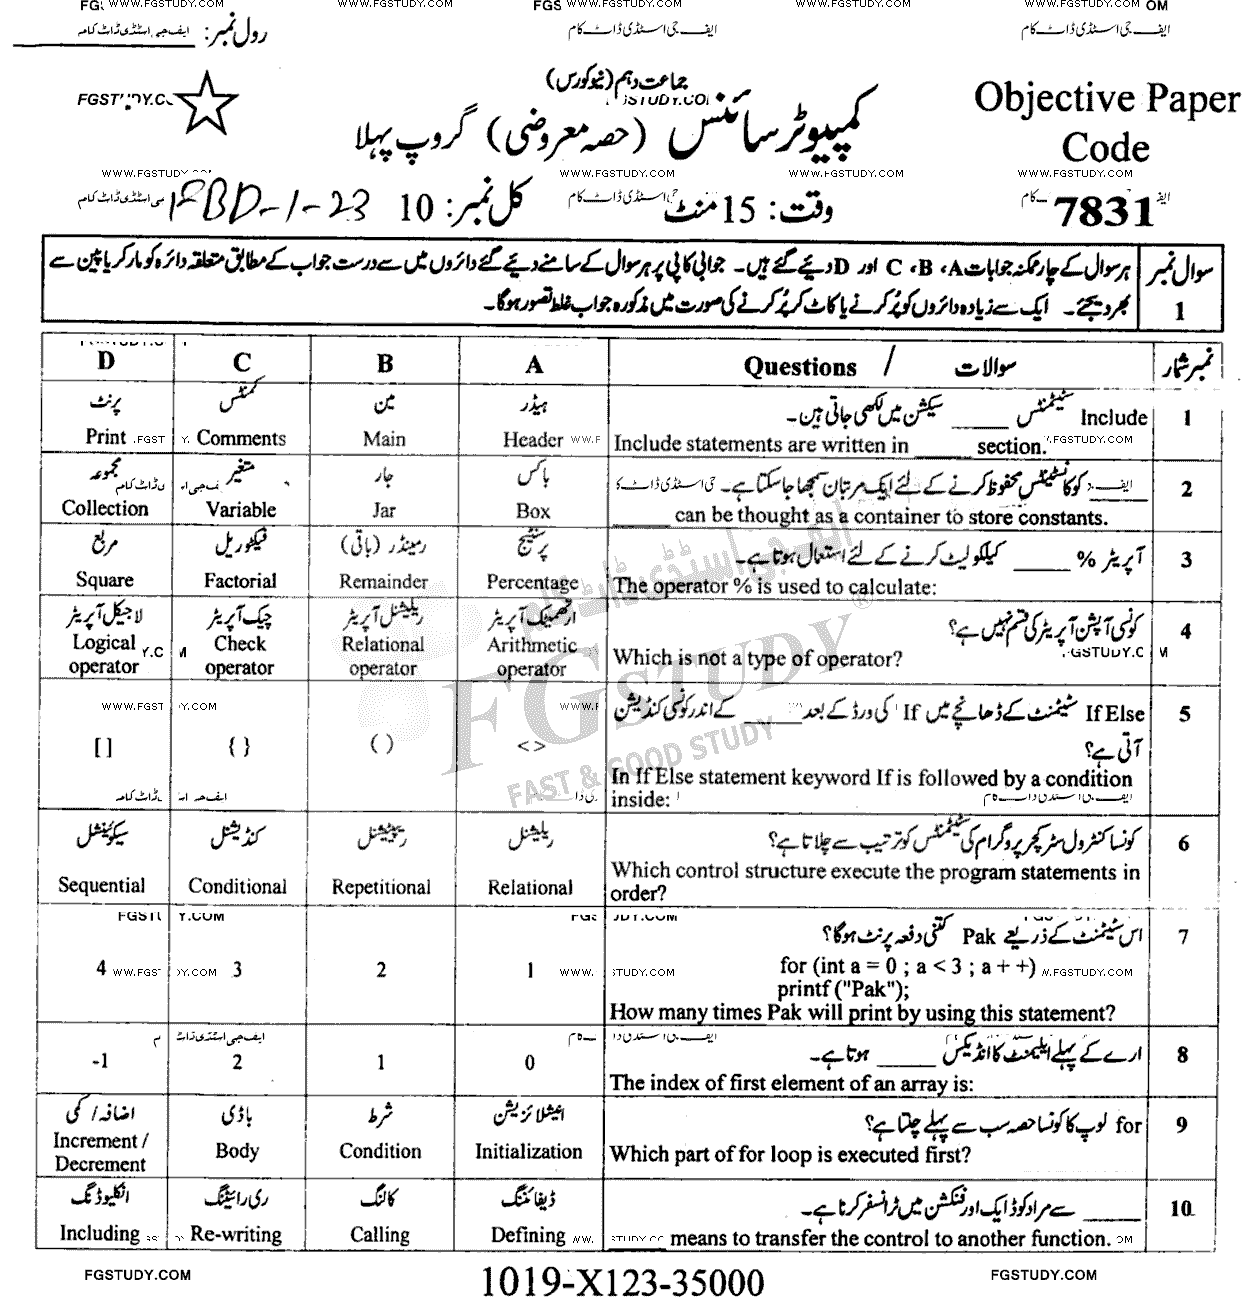 WWW.FGSTUDY.COM WWW.FGSTUDY.COM WWW.FGSTUDY.COM
ایف جی اسٹڈی ڈاٹ کام ایف جی اسٹڈی ڈاٹ کام
رول نمبر:
جماعت دہم (نیو کورس)
کمپیوٹر سائنس (حصہ معروضی) گروپ پہلا
Objective Paper
Code
7831
WWW.FGSTUDY.COM WWW.FGSTUDY.COM WWW.FGSTUDY.COM WWW.FGSTUDY.COM
وقت: 15 منٹ کل نمبر: 10
FBD-1-23
سوال نمبر 1
ہر سوال کے چار ممکنہ جوابات A، B، C اور D دیئے گئے ہیں۔ جوابی کاپی پر ہر سوال کے سامنے دیئے گئے دائروں میں سے درست جواب کے مطابق متعلقہ دائرہ کو مارکر یا پین سے
بھر دیجئے۔ ایک سے زیادہ دائروں کو پُر کرنے یا کاٹ کر پُر کرنے کی صورت میں مذکورہ جواب غلط تصور ہوگا۔
نمبر شمار سوالات / Questions A B C D
1 Include سٹیٹمنٹس _____ سیکشن میں لکھی جاتی ہیں۔
Include statements are written in _____ section.
ہیڈر مین کمنٹس پرنٹ
Header Main Comments Print
2 _____ کو کانسٹینٹس محفوظ کرنے کے لئے ایک مرتبان سمجھا جاسکتا ہے۔
_____ can be thought as a container to store constants.
باکس جار متغیر مجموعہ
Box Jar Variable Collection
3 آپریٹر % _____ کیلکولیٹ کرنے کے لئے استعمال ہوتا ہے۔
The operator % is used to calculate:
پرسنٹیج ریمینڈر (باقی) فیکٹوریل مربع
Percentage Remainder Factorial Square
4 کونسی آپشن آپریٹر کی قسم نہیں ہے؟
Which is not a type of operator?
ارتھمیٹک آپریٹر ریلیشنل آپریٹر چیک آپریٹر لاجیکل آپریٹر
Arithmetic operator Relational operator Check operator Logical operator
5 If Else سٹیٹمنٹ کے ڈھانچے میں 'If' کی ورڈ کے بعد _____ کے اندر کونسی کنڈیشن
آتی ہے؟
In If Else statement keyword If is followed by a condition
inside:
<> ( ) { } [ ]
6 کونسا کنٹرول سٹرکچر پروگرام کی سٹیٹمنٹس کو ترتیب سے چلاتا ہے؟
Which control structure execute the program statements in
order?
ریلیشنل ریپیٹیشنل کنڈیشنل سیکوئینشل
Relational Repetitional Conditional Sequential
7 اس سٹیٹمنٹ کے ذریعے Pak کتنی دفعہ پرنٹ ہوگا؟
for (int a = 0 ; a < 3 ; a + +)
printf ("Pak");
How many times Pak will print by using this statement?
1 2 3 4
8 ارے کے پہلے ایلیمنٹ کا انڈیکس _____ ہوتا ہے۔
The index of first element of an array is:
0 1 2 -1
9 for لوپ کا کونسا حصہ سب سے پہلے چلتا ہے؟
Which part of for loop is executed first?
انیشلائزیشن شرط باڈی اضافہ/کمی
Initialization Condition Body Increment / Decrement
10 _____ سے مراد کوڈ ایک اور فنکشن میں ٹرانسفر کرنا ہے۔
_____ means to transfer the control to another function.
ڈیفائننگ کالنگ ری رائیٹنگ انکلیوڈنگ
Defining Calling Re-writing Including
FGSTUDY
FAST & GOOD STUDY
FGSTUDY.COM 1019-X123-35000 FGSTUDY.COM